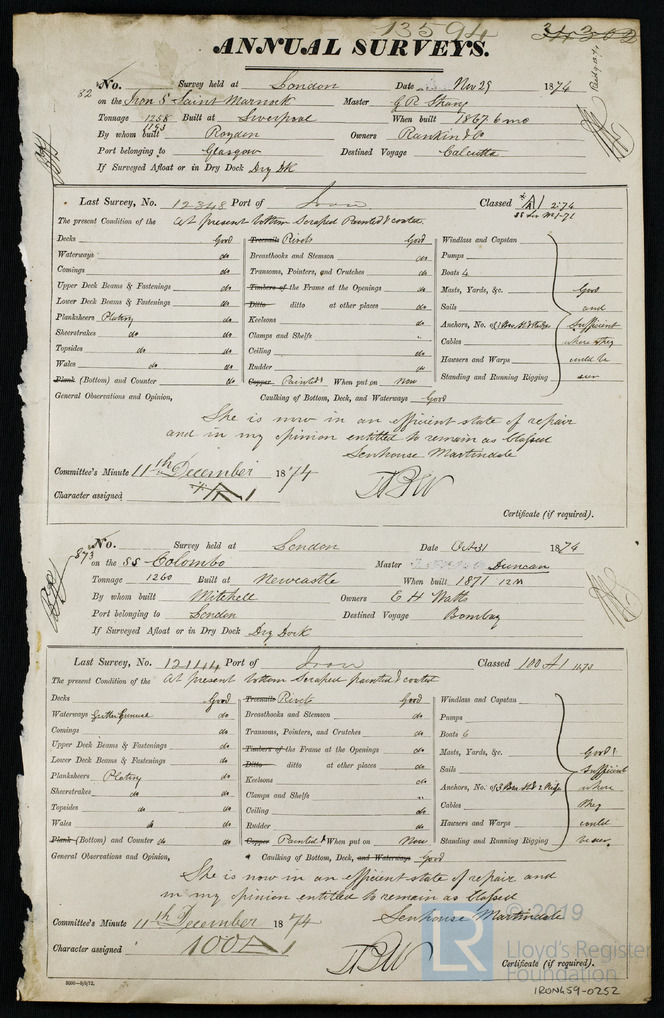 13594
34302
ANNUAL SURVEYS.
82 No. Survey held at London Date Nov 25 1874
on the Iron S Saint Marnock Master G. R. Strang
Tonnage 1258 1193 Built at Liverpool When built 1867 6mo
By whom built Royden Owners Rankin & Co
Port belonging to Glasgow Destined Voyage Calcutta
If Surveyed Afloat or in Dry Dock Dry Dk
Last Survey, No. 12348 Port of Iron Classed A1 2.74
SS Lon No1-71
The present Condition of the At present bottom Scraped Painted & coated
Decks Good Treenails Rivets Good Windlass and Capstan
Waterways do Breasthooks and Stemson do Pumps
Comings do Transoms, Pointers, and Crutches do Boats 4
Upper Deck Beams & Fastenings do Timbers of the Frame at the Openings do Masts, Yards, &c. Good
Lower Deck Beams & Fastenings do Ditto ditto at other places do Sails and
Plansheers Plating do Keelsons do Anchors, No. of Sufficient
Sheerstrakes do do Clamps and Shelfs Cables where they
Topsides do do Ceiling do Hawsers and Warps could be
Wales do do Rudder Standing and Running Rigging seen
Plank (Bottom) and Counter do Copper Painted & When put on Now
General Observations and Opinion, Caulking of Bottom, Deck, and Waterways Good
She is now in an efficient state of repair
and in my opinion entitled to remain as Classed
Senhouse Martindale
Committee's Minute 11th December 1874
Character assigned A1
Certificate (if required).
873 No. Survey held at London Date Oct 31 1874
on the SS Colombo Master Duncan
Tonnage 1260 Built at Newcastle When built 1871 12m
By whom built Mitchell Owners E H Watts
Port belonging to London Destined Voyage Bombay
If Surveyed Afloat or in Dry Dock Dry Dock
Last Survey, No. 12144 Port of Iron Classed 100A1
The present Condition of the At present bottom Scraped painted & coated
Decks Good Treenails Rivets Good Windlass and Capstan
Waterways Gutter Gunwale do Breasthooks and Stemson do Pumps
Comings do Transoms, Pointers, and Crutches do Boats 6
Upper Deck Beams & Fastenings do Timbers of the Frame at the Openings do Masts, Yards, &c. Good &
Lower Deck Beams & Fastenings do Ditto ditto at other places do Sails Sufficient
Plansheers Plating do Keelsons do Anchors, No. of where
Sheerstrakes do do Clamps and Shelfs Cables they
Topsides do do Ceiling do Hawsers and Warps could
Wales do do Rudder do Standing and Running Rigging be seen
Plank (Bottom) and Counter do do Copper Painted & When put on Now
General Observations and Opinion, Caulking of Bottom, Deck, and Waterways Good
She is now in an efficient state of repair and
in my opinion entitled to remain as Classed
Senhouse Martindale
Committee's Minute 11th December 1874
Character assigned 100A1
Certificate (if required).
© 2019
LR Lloyd's Register
Foundation
IRON459-0252